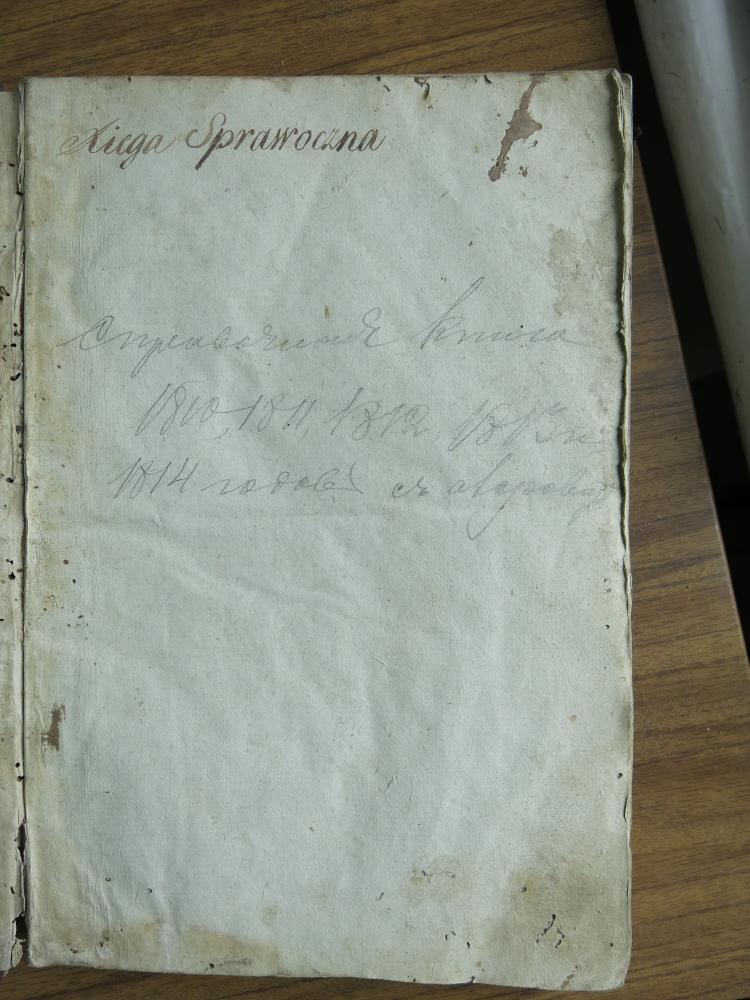 Xięga Sprawoczna
Справочная книга
1810, 1811, 1812, 1813 и
1814 годовъ съ